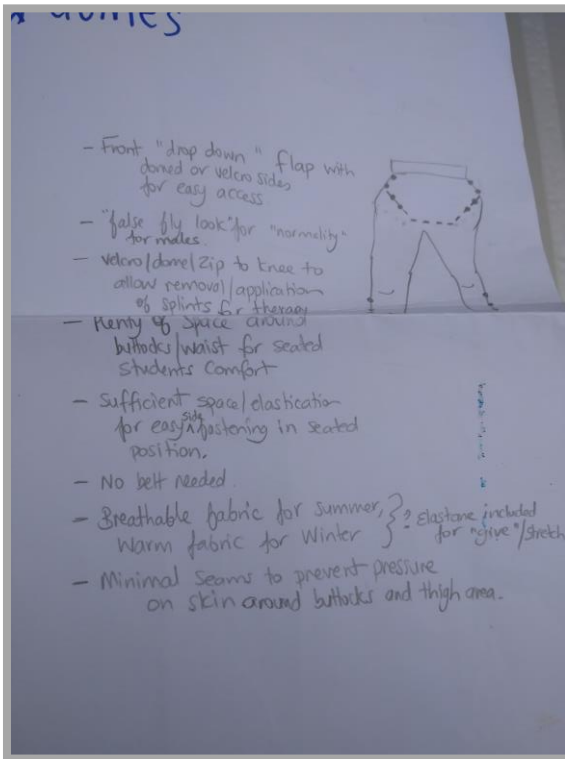 & domes
- Front "drop down" flap with
domed or velcro sides
for easy access
- "false fly look" for "normality"
for males.
- Velcro/dome/Zip to knee to
allow removal/application
of splints for therapy
- Plenty of space around
buttocks/waist for seated
students comfort
- Sufficient space/elastication
for easy side fastening in seated
position.
- No belt needed.
- Breathable fabric for summer, } ? Elastane included
Warm fabric for Winter } for "give"/stretch
- Minimal seams to prevent pressure
on skin around buttocks and thigh area.